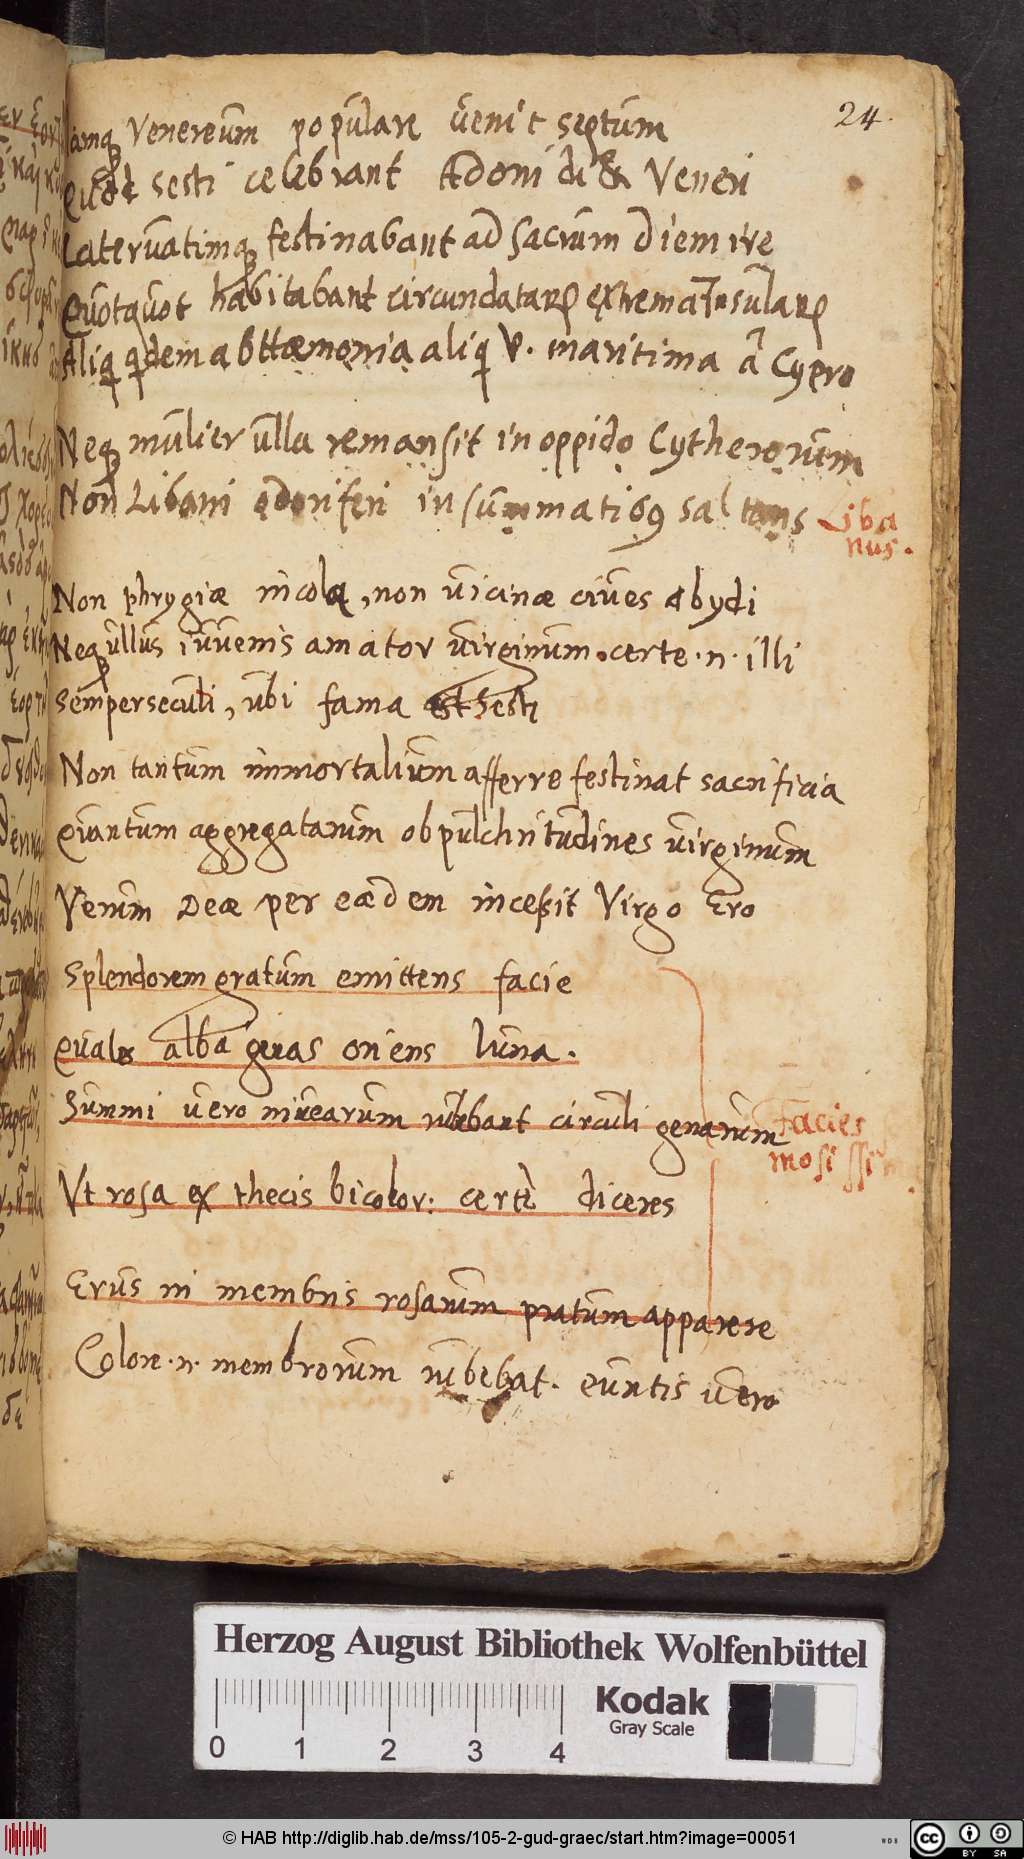 24.
Iamq Venereum populare venit festum
Quod sesti celebrant Adoni di & Veneri
Catervatimq festinabant ad sacrum diem ire
Quotquot habitabant circundatarū extrema Insularū
Aliq qdem ab Haemonia aliq v. maritima à Cypro
Neq mulier ulla remansit in oppido Cytherorum
Non Libani odoriferi in summatib9 saltans
Liba
nus.
Non phrygiæ incola, non vicinæ cives Abydi
Neq ullus iuvenis amator virginum. certe. n. illi
Semper seculi, ubi fama est Sesti
Non tantum immortalium afferre festinat sacrificia
Quantum aggregatarum ob pulchritudines virginum
Verum Deæ per eædem incessit Virgo Ero
Splendorem gratum emittens facie
Quales alba genas oriens luna.
Summi vero nivearum rubebant circuli genarum
Facies
mosissim
Ut rosa ex thecis bicolor: certè diceres
Erus in membris rosarum pratum apparere
Colore. n. membrorum rubebat. euntis vero
Herzog August Bibliothek Wolfenbüttel
Kodak
Gray Scale
0 1 2 3 4
© HAB http://diglib.hab.de/mss/105-2-gud-graec/start.htm?image=00051
WDB
cc BY SA